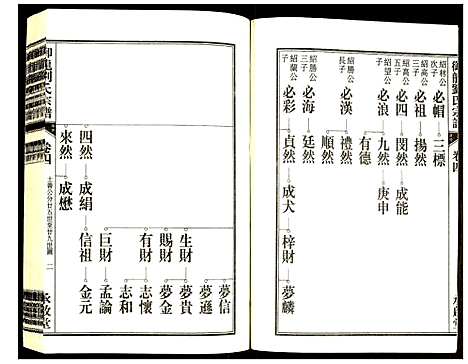 御龍劉氏宗譜
卷四
紹林公次子
必帽
三標
紹高公四子
必祖
揚然
紹高公五子
必四
閔然
成能
紹望公子
必浪
九然
庚申
有德
順然
紹勝公長子
必漢
禮然
紹勝公三子
必海
廷然
紹蘭公子
必彩
貞然
成犬
梓財
夢麟
夢信
夢遜
生財
夢貴
賜財
夢金
有財
志懷
志和
巨財
孟論
四然
成絹
信祖
金元
來然
成懋
士善公分廿五世至廿九世圖
二
御龍劉氏宗譜
卷四
承啟堂